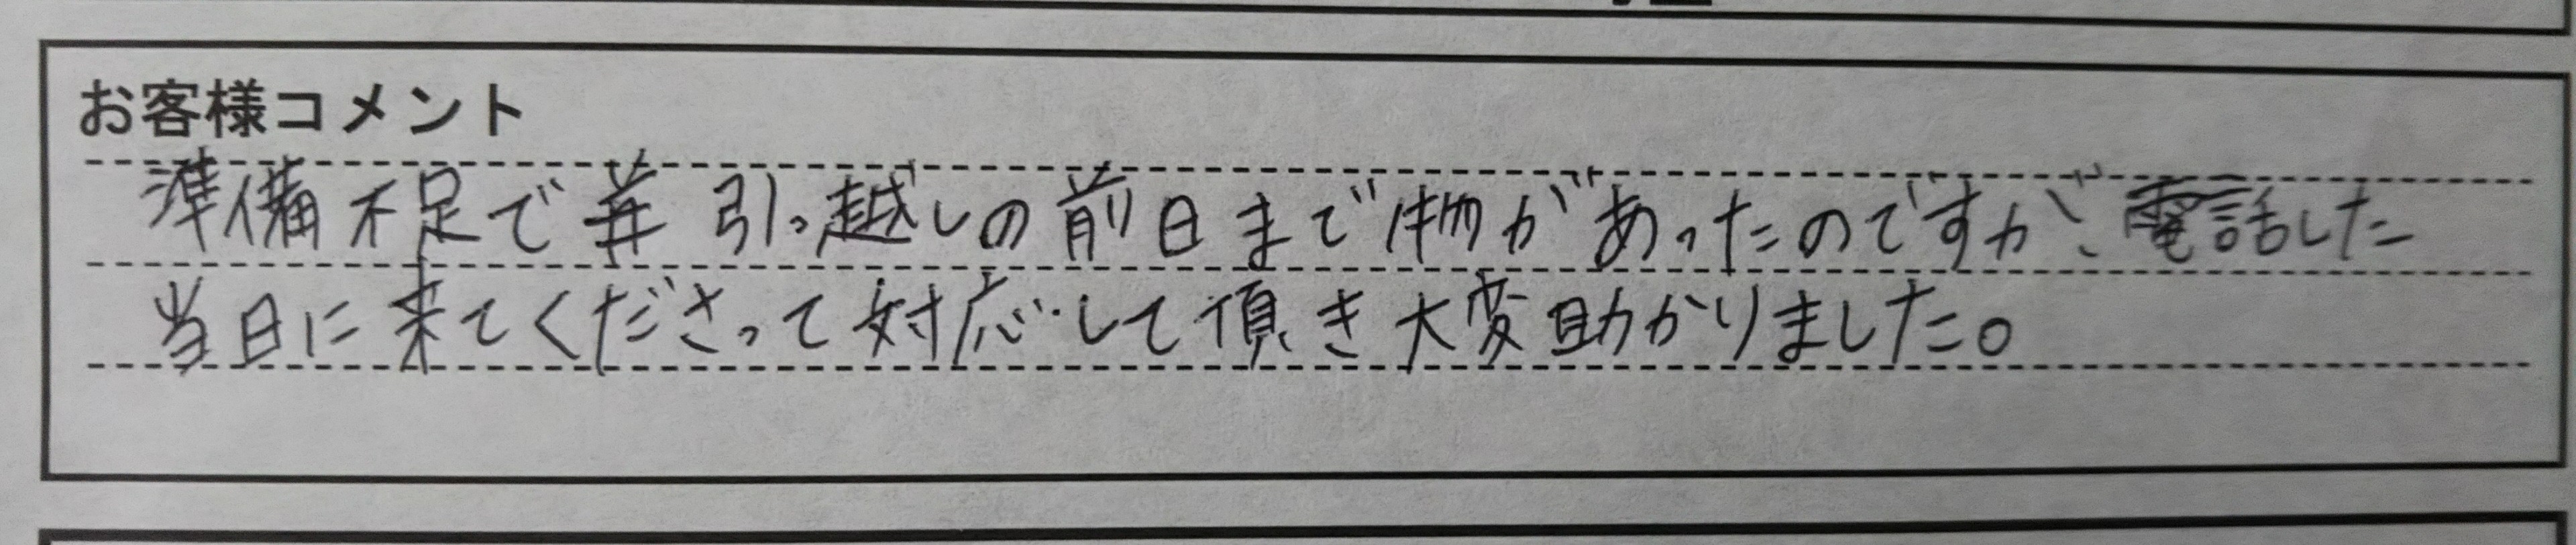 お客様コメント
準備不足で 引っ越しの前日まで物があったのですが、電話した
当日に来てくださって対応して頂き大変助かりました。